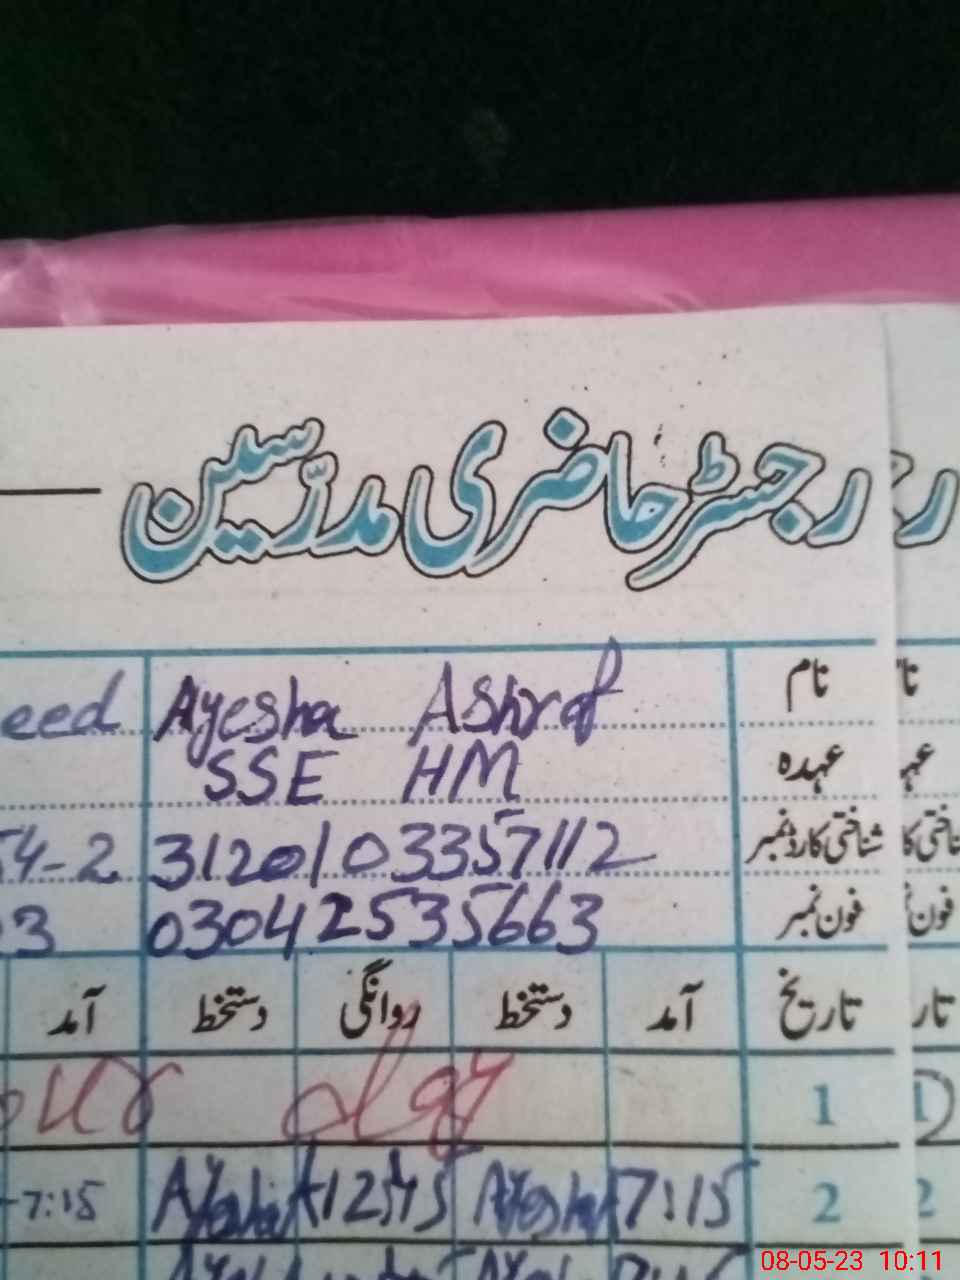 رجسٹر حاضری مدرّسین
نام Ayesha Ashraf eed
عہدہ SSE HM
شناختی کارڈ نمبر 3120103357112 54-2
فون نمبر 03042535663 3
تاریخ آمد دستخط روانگی دستخط آمد
1
2 7:15 Ayesha 12:45 Ayesha 7:15
08-05-23 10:11